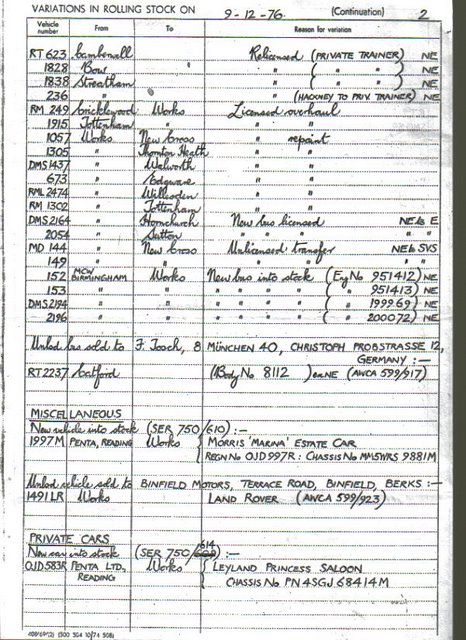 VARIATIONS IN ROLLING STOCK ON 9-12-76. (Continuation) 2
Vehicle number From To Reason for variation
RT 623 Camberwell Relicensed (PRIVATE TRAINER) NE
1828 Bow " ( " " ) NE
1838 Streatham " ( " " ) NE
236 " " (HACKNEY TO PRIV. TRAINER) NE
RM 249 Cricklewood Works Licensed overhaul
1915 Tottenham " " "
1057 Works New Cross " repaint
1305 " Thornton Heath " "
DMS 1437 " Walworth " "
673 " Edgware " "
RML 2474 " Willesden " "
RM 1302 " Tottenham " "
DMS 2164 " Hornchurch New bus licensed NE to E
2054 " Sutton " " " "
MD 144 " New Cross Unlicensed transfer NE to SVS
149 " " " " "
152 MCW BIRMINGHAM Works New bus into stock (Eng No 951412) NE
153 " " " " " " ( " 951413) NE
DMS 2194 " " " " " " ( " 199969) NE
2196 " " " " " " ( " 200072) NE
Unlcd bus sold to F. Tooch, 8 MÜNCHEN 40, CHRISTOPH PROBSTRASSE 12,
GERMANY :-
RT 2237 Catford (Body No 8112) ex NE (AWCA 599/917)
MISCELLANEOUS
New vehicle into stock (SER 750/610) :-
1997 M PENTA, READING Works MORRIS 'MARINA' ESTATE CAR
REGN NO OJD 997R : CHASSIS NO MA5WRS 9881M
Unlcd vehicle sold to BINFIELD MOTORS, TERRACE ROAD, BINFIELD, BERKS :-
1491 LR Works LAND ROVER (AWCA 599/923)
PRIVATE CARS
New car into stock (SER 750/614) :-
OJD 583R PENTA LTD, READING Works LEYLAND PRINCESS SALOON
CHASSIS NO PN4SGJ 68414M
408/69(2) (500 504 10/74 508)